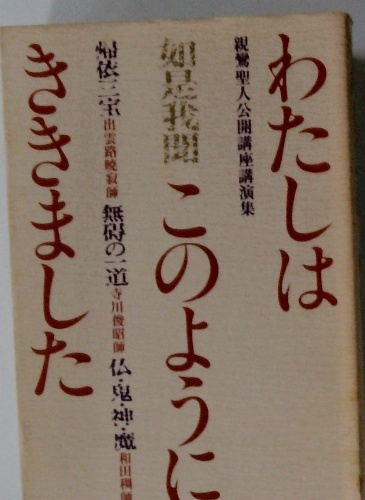 わたしは
親鸞聖人公開講座講演集
如是我聞
このように
帰依三宝 出雲路暁寂師
無碍の一道 寺川俊昭師
仏・鬼・神・魔 和田稠師
ききました